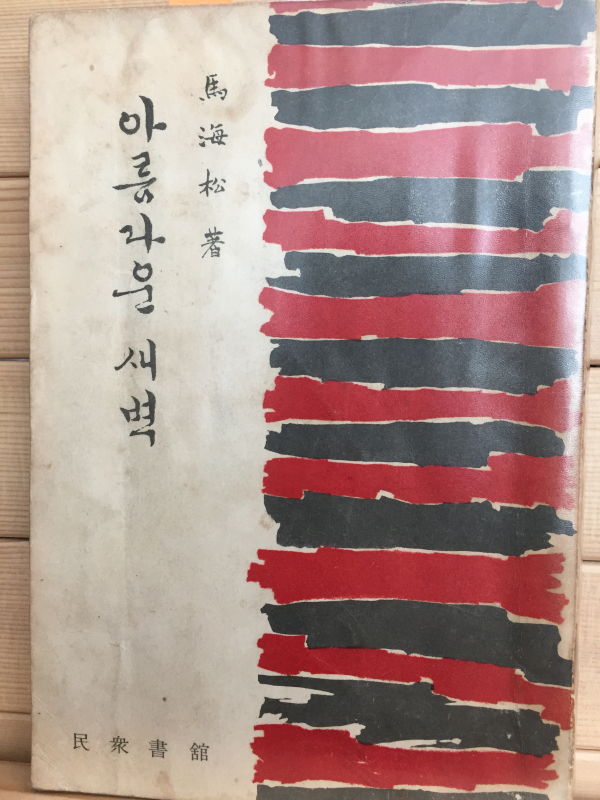 馬海松 著
아름다운 새벽
民衆書舘